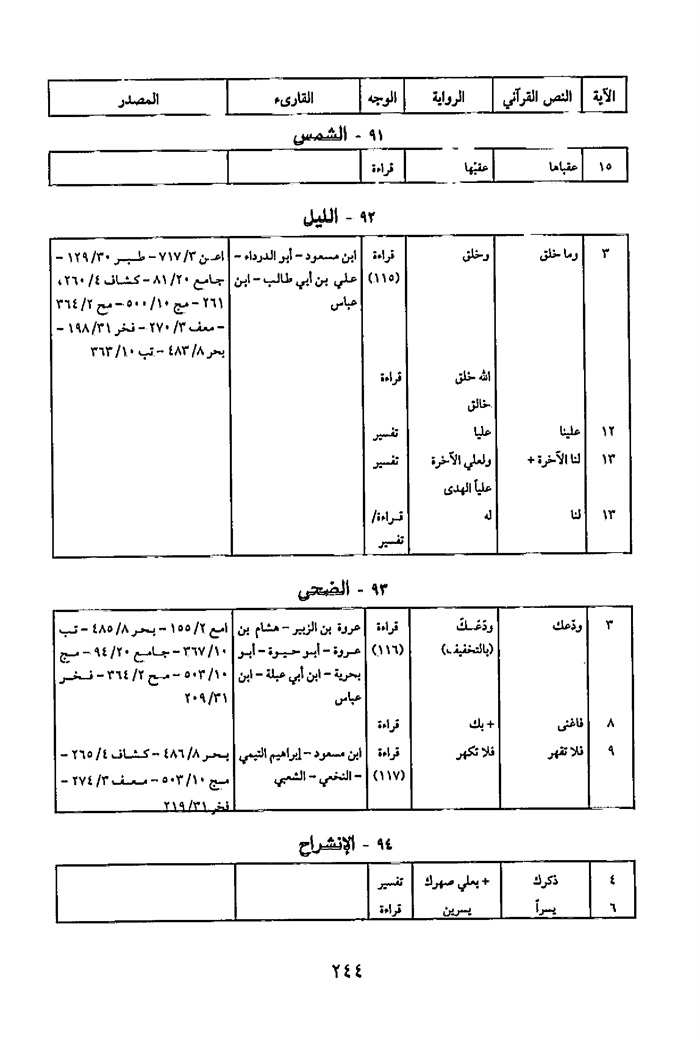 الآية النص القرآني الرواية الوجه القارىء المصدر
٩١ - الشمس
١٥ عقباها عقبٰها قراءة
٩٢ - الليل
٣ وما خلق وخلق قراءة ابن مسعود - أبو الدرداء - اعن ٧١٧/٣ - طبر ١٢٩/٣٠ -
(١١٥) علي بن أبي طالب - ابن جامع ٨١/٢٠ - كشاف ٢٦٠/٤،
عباس ٢٦١ - مج ٥٠٠/١٠ - مح ٣٦٤/٢
- معف ٢٧٠/٣ - فخر ١٩٨/٣١ -
بحر ٤٨٣/٨ - تب ٣٦٣/١٠
الله خلق قراءة
خالق
١٢ علينا عليا تفسير
١٣ لنا الآخرة + ولعلي الآخرة تفسير
علياً الهدى
١٣ لنا له قراءة/
تفسير
٩٣ - الضحى
٣ ودّعك ودَعَكَ قراءة عروة بن الزبير - هشام بن امع ١٥٥/٢ - بحر ٤٨٥/٨ - تب
(بالتخفيف) (١١٦) عروة - أبو حيوة - أبو ٣٦٧/١٠ - جامع ٩٤/٢٠ - مج
بحرية - ابن أبي عبلة - ابن ٥٠٣/١٠ - مح ٣٦٤/٢ - فخر
عباس ٢٠٩/٣١
٨ فاغنى + بك قراءة
٩ فلا تقهر فلا تكهر قراءة ابن مسعود - إبراهيم التيمي بحر ٤٨٦/٨ - كشاف ٢٦٥/٤ -
(١١٧) - النخعي - الشعبي مج ٥٠٣/١٠ - معف ٢٧٤/٣ -
فخر ٢١٩/٣١
٩٤ - الإنشراح
٤ ذكرك + بعلي صهرك تفسير
٦ يسراً يسرين قراءة
٢٤٤